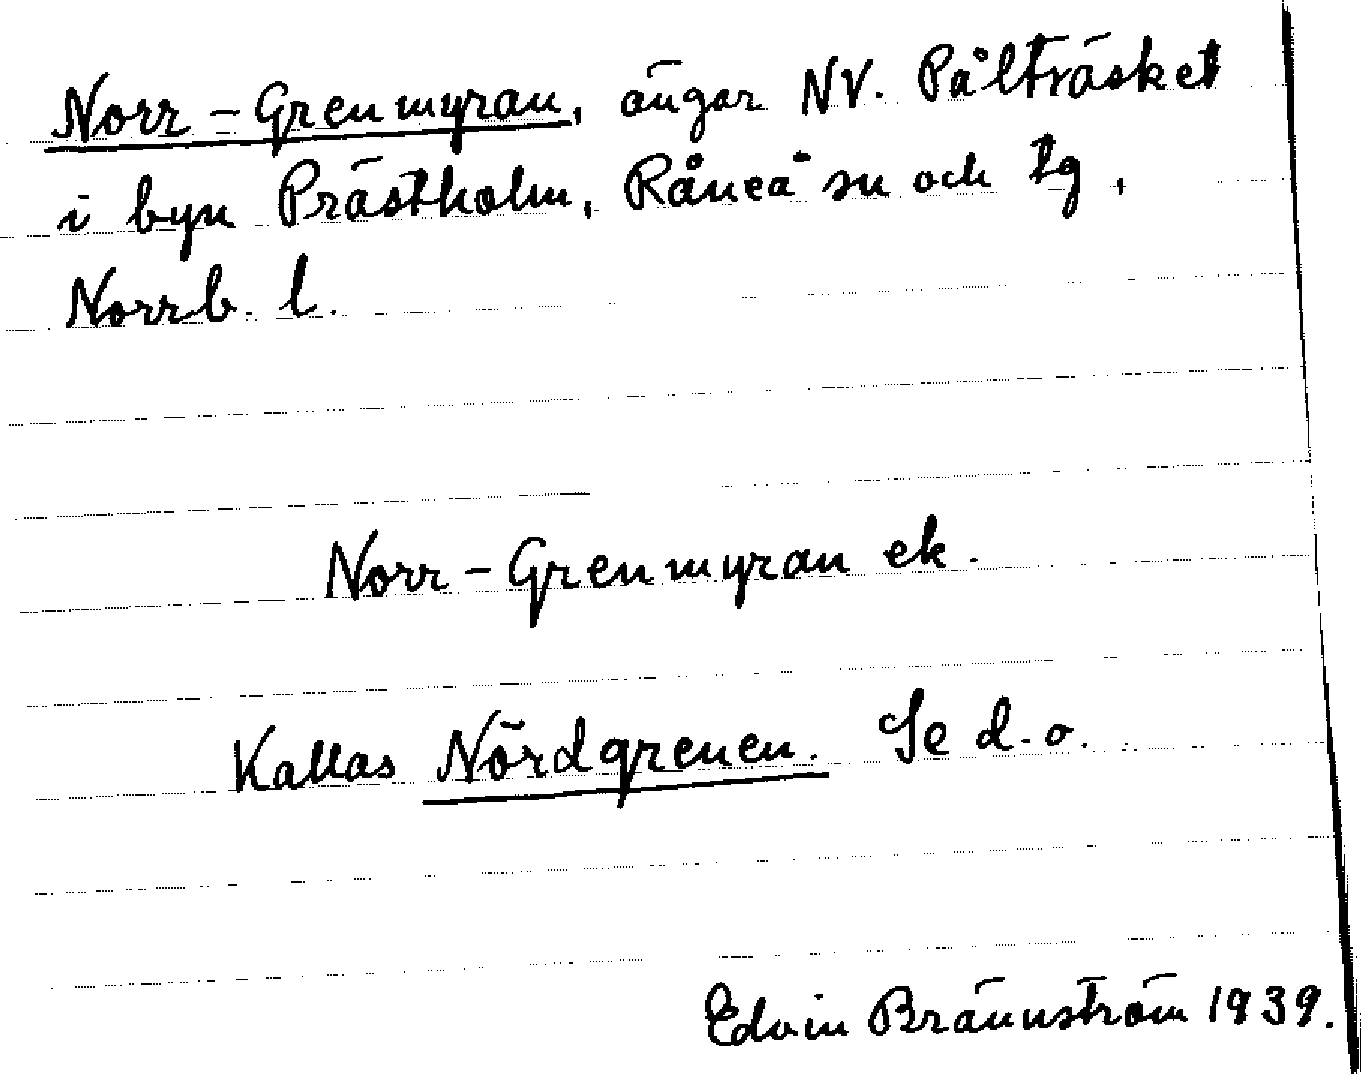 Norr-Grenmyran, ängar NV. Pålträsket
i byn Prästholm, Råneå sn och tg,
Norrb. l.
Norr-Grenmyran ek.
Kallas Nördgrenen. Se d.o.
Edvin Brännström 1939.